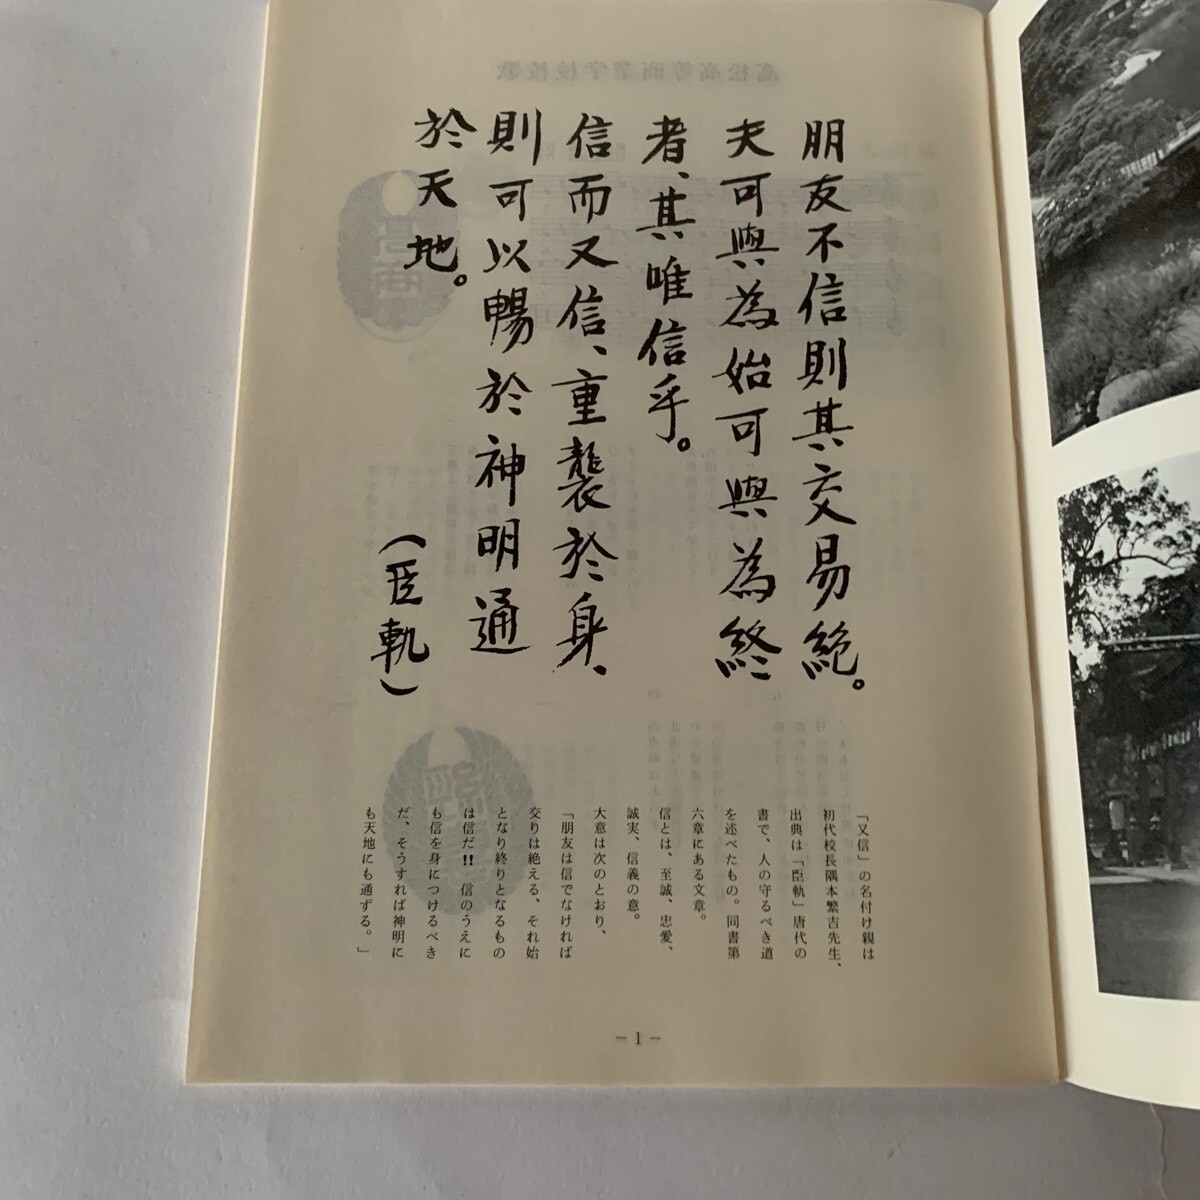 朋友不信則其交易絶。
夫可與為始可與為終
者、其唯信乎。
信而又信、重襲於身、
則可以暢於神明通
於天地。
(臣軌)
「又信」の名付け親は
初代校長隅本繁吉先生、
出典は「臣軌」唐代の
書で、人の守るべき道
を述べたもの。同書第
六章にある文章。
信とは、至誠、忠愛、
誠実、信義の意。
大意は次のとおり、
「朋友は信でなければ
交りは絶える、それ始
となり終りとなるもの
は信だ!! 信のうえに
も信を身につけるべき
だ、そうすれば神明に
も天地にも通ずる。」
－1－